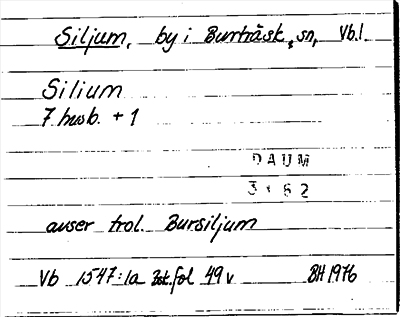 Siljum, by i Burträsk, sn, Vb.l.
Silium
7 husb. + 1
DAUM
3162
avser trol. Bursiljum
Vb 1547:1a fol 49v BH 1976